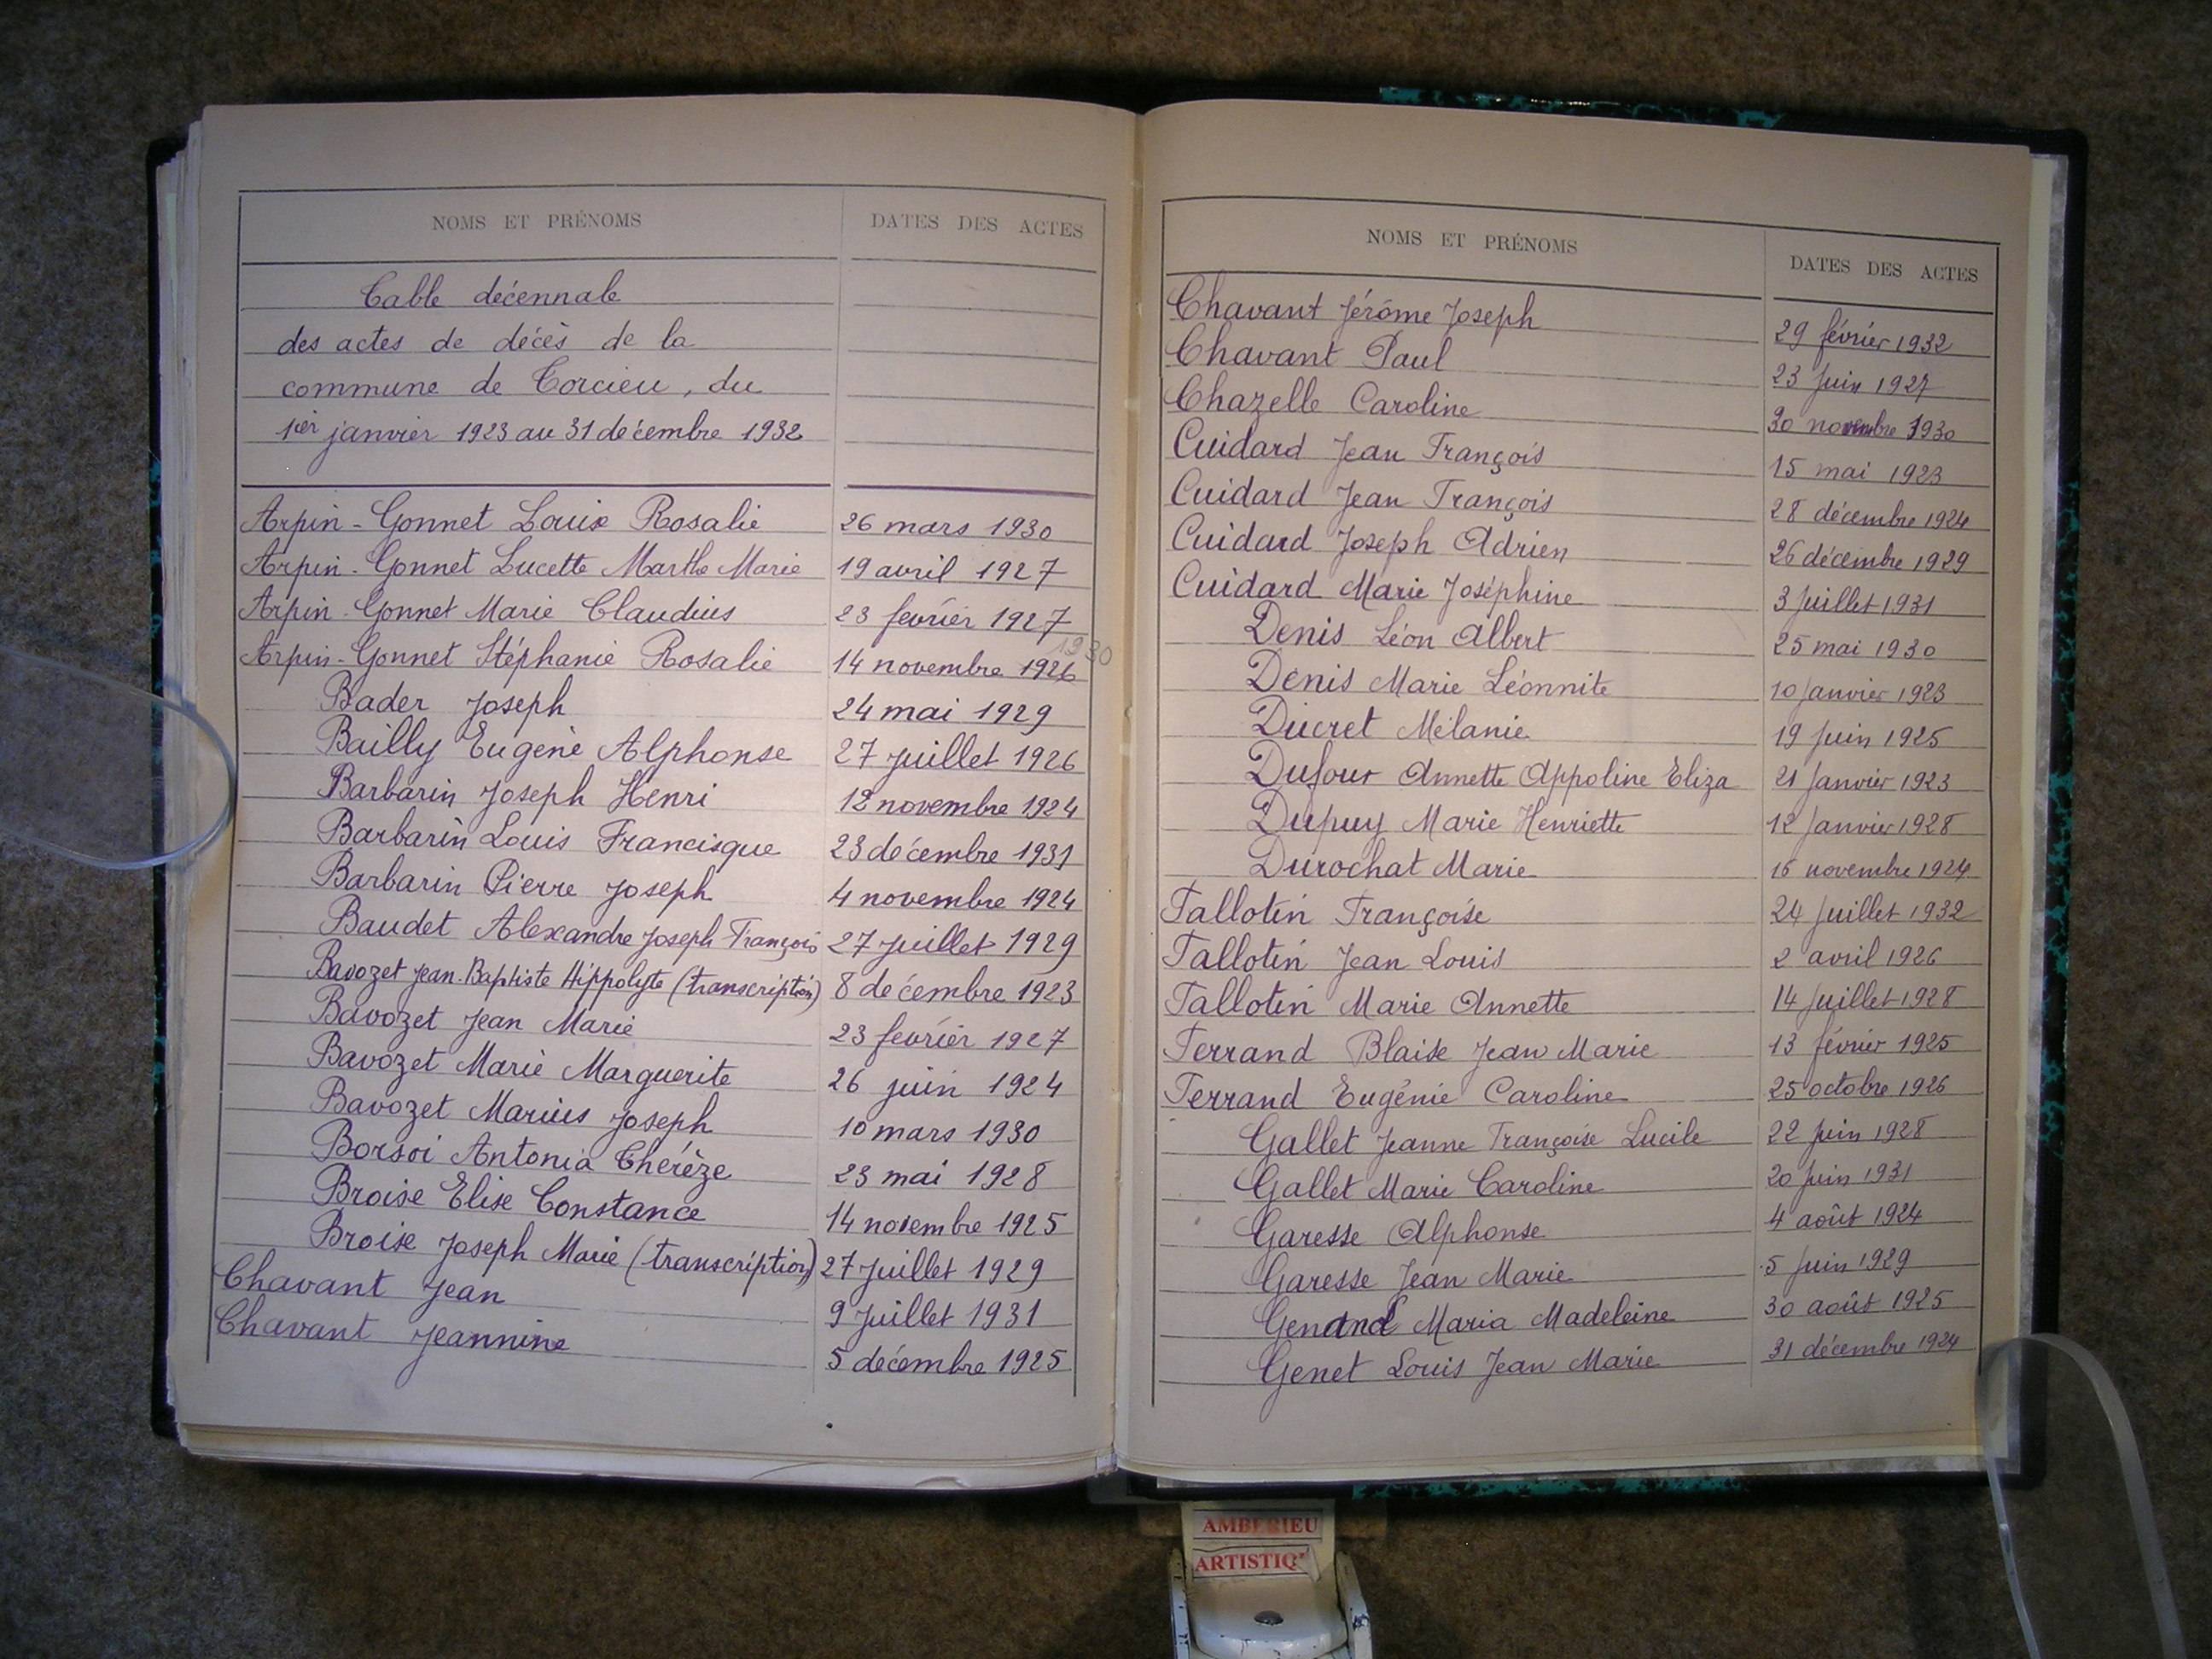 NOMS ET PRÉNOMS DATES DES ACTES
Table décennale
des actes de décès de la
commune de Torcieu, du
1ier janvier 1923 au 31 décembre 1932
Arpin-Gonnet Louise Rosalie 26 mars 1930
Arpin-Gonnet Lucette Marthe Marie 19 avril 1927
Arpin-Gonnet Marie Claudius 23 fevrier 1927
1930
Arpin-Gonnet Stéphanie Rosalie 14 novembre 1926
Bader Joseph 24 mai 1929
Bailly Eugène Alphonse 27 juillet 1926
Barbarin Joseph Henri 12 novembre 1924
Barbarin Louis Francisque 23 décembre 1931
Barbarin Pierre Joseph 4 novembre 1924
Baudet Alexandre Joseph François 27 juillet 1929
Bavozet Jean-Baptiste Hippolyte (transcription) 8 décembre 1923
Bavozet Jean Marie 23 fevrier 1927
Bavozet Marie Marguerite 26 juin 1924
Bavozet Marius Joseph 10 mars 1930
Borsoi Antonia Thérèze 23 mai 1928
Broise Elise Constance 14 novembre 1925
Broise Joseph Marie (transcription) 27 juillet 1929
Chavant Jean 9 juillet 1931
Chavant Jeannine 5 décembre 1925
NOMS ET PRÉNOMS DATES DES ACTES
Chavant Jérôme Joseph 29 février 1932
Chavant Paul 23 Juin 1927
Chazelle Caroline 30 novembre 1930
Cuidard Jean François 15 mai 1923
Cuidard Jean François 28 décembre 1924
Cuidard Joseph Adrien 26 décembre 1929
Cuidard Marie Joséphine 3 Juillet 1931
Denis Léon Albert 25 mai 1930
Denis Marie Léonnite 10 Janvier 1923
Ducret Mélanie 19 Juin 1925
Dufour Annette Appoline Eliza 21 Janvier 1923
Dupuy Marie Henriette 12 Janvier 1928
Durochat Marie 16 novembre 1924
Fallotin Françoise 24 Juillet 1932
Fallotin Jean Louis 2 avril 1926
Fallotin Marie Annette 14 Juillet 1928
Ferrand Blaise Jean Marie 13 février 1925
Ferrand Eugénie Caroline 25 octobre 1926
Gallet Jeanne Françoise Lucile 22 Juin 1928
Gallet Marie Caroline 20 Juin 1931
Garesse Alphonse 4 août 1924
Garesse Jean Marie 5 Juin 1929
Genand Maria Madeleine 30 août 1925
Genet Louis Jean Marie 31 décembre 1924
AMBERIEU
ARTISTIQ'